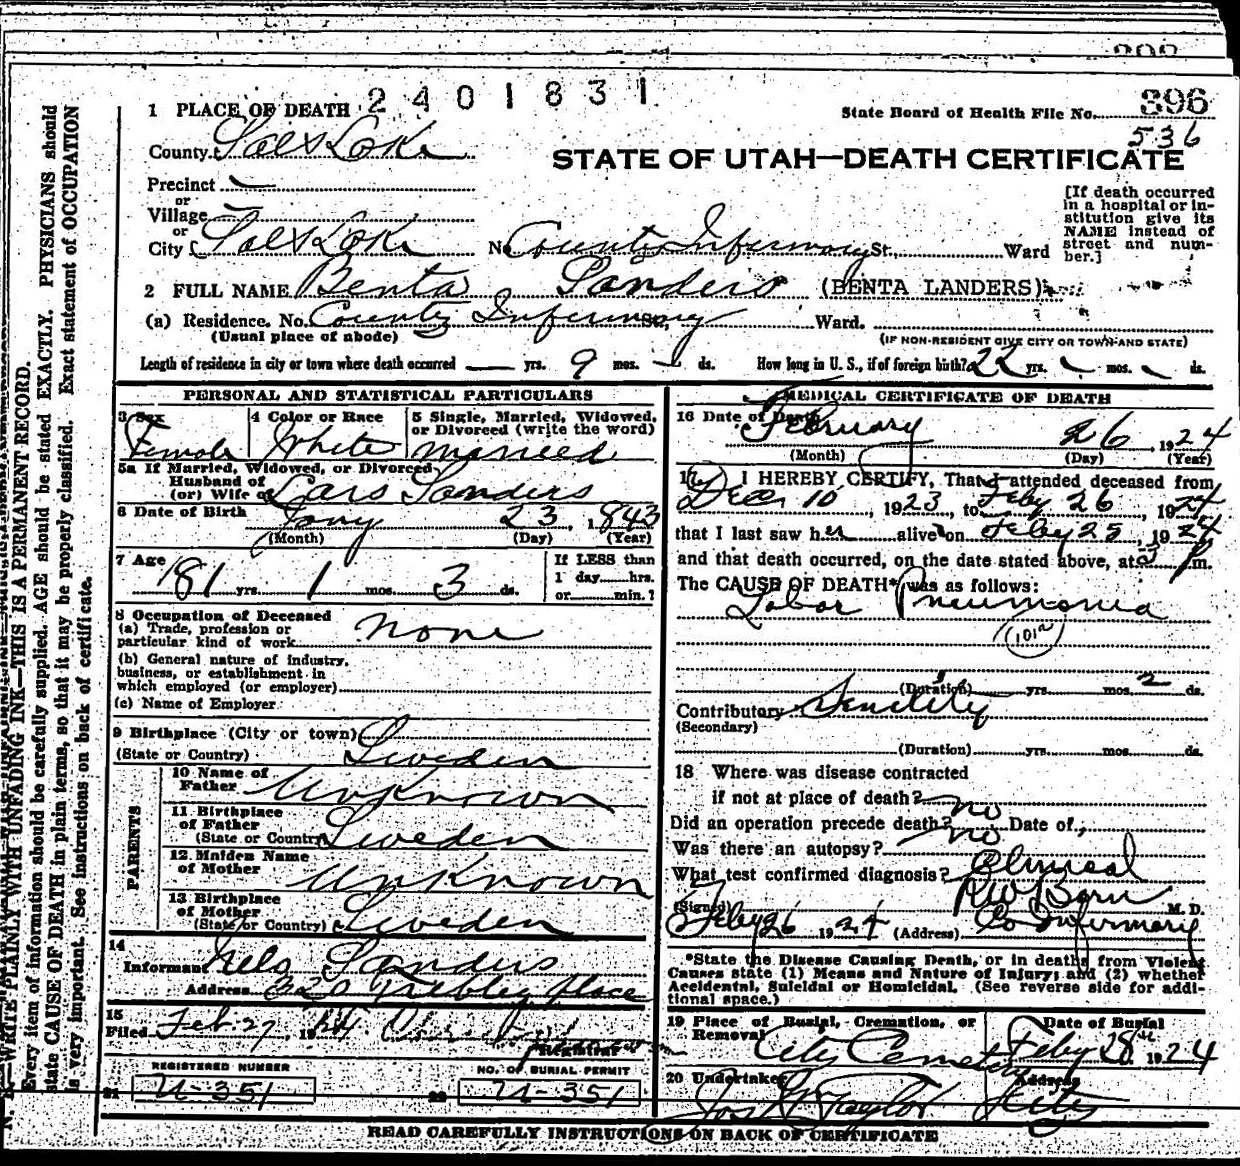 2401831
1 PLACE OF DEATH
State Board of Health File No. 396
536
County Salt Lake
STATE OF UTAH—DEATH CERTIFICATE
Precinct
or
Village
or
City Salt Lake No. County Infirmary St., Ward
[If death occurred
in a hospital or in-
stitution give its
NAME instead of
street and num-
ber.]
2 FULL NAME Benta Sanders (BENTA LANDERS)
(a) Residence. No. County Infirmary St., Ward.
(Usual place of abode)
(IF NON-RESIDENT GIVE CITY OR TOWN AND STATE)
Length of residence in city or town where death occurred — yrs. 9 mos. — ds. How long in U. S., if of foreign birth? 22 yrs. mos. ds.
PERSONAL AND STATISTICAL PARTICULARS
3 Sex
Female
4 Color or Race
White
5 Single, Married, Widowed,
or Divorced (write the word)
married
5a If Married, Widowed, or Divorced
Husband of
(or) Wife of Lars Sanders
6 Date of Birth Jany 23, 1843
(Month) (Day) (Year)
7 Age
81 yrs. 1 mos. 3 ds.
If LESS than
1 day....hrs.
or......min.?
8 Occupation of Deceased
(a) Trade, profession or
particular kind of work none
(b) General nature of industry,
business, or establishment in
which employed (or employer)
(c) Name of Employer
9 Birthplace (City or town)
(State or Country) Sweden
PARENTS
10 Name of
Father Unknown
11 Birthplace
of Father
(State or Country) Sweden
12 Maiden Name
of Mother Unknown
13 Birthplace
of Mother
(State or Country) Sweden
14
Informant Nels Sanders
Address 320 place
15
Filed Feb. 27, 1924
Registrar
REGISTERED NUMBER
21 U-351
NO. OF BURIAL PERMIT
22 U-351
MEDICAL CERTIFICATE OF DEATH
16 Date of Death February 26, 1924
(Month) (Day) (Year)
17 I HEREBY CERTIFY, That I attended deceased from
Dec 10, 1923, to Feby 26, 1924
that I last saw her alive on Feby 25, 1924
and that death occurred, on the date stated above, at 3 P.m.
The CAUSE OF DEATH* was as follows:
Lobar Pneumonia
(Duration) yrs. mos. 2 ds.
Contributory Senility
(Secondary)
(Duration) yrs. mos. ds.
18 Where was disease contracted
if not at place of death?
Did an operation precede death? no Date of
Was there an autopsy? no
What test confirmed diagnosis? Clinical
(Signed) M. D.
Feby 26 1924 (Address) Co Infirmary
*State the Disease Causing Death, or in deaths from Violent
Causes state (1) Means and Nature of Injury; and (2) whether
Accidental, Suicidal or Homicidal. (See reverse side for addi-
tional space.)
19 Place of Burial, Cremation, or
Removal City Cemetery
Date of Burial
Feby 28th 1924
20 Undertaker Jos Wm Taylor
Address
City
READ CAREFULLY INSTRUCTIONS ON BACK OF CERTIFICATE
N. B.—WRITE PLAINLY WITH UNFADING INK—THIS IS A PERMANENT RECORD.
Every item of information should be carefully supplied. AGE should be stated EXACTLY. PHYSICIANS should
state CAUSE OF DEATH in plain terms, so that it may be properly classified. Exact statement of OCCUPATION
is very important. See instructions on back of certificate.